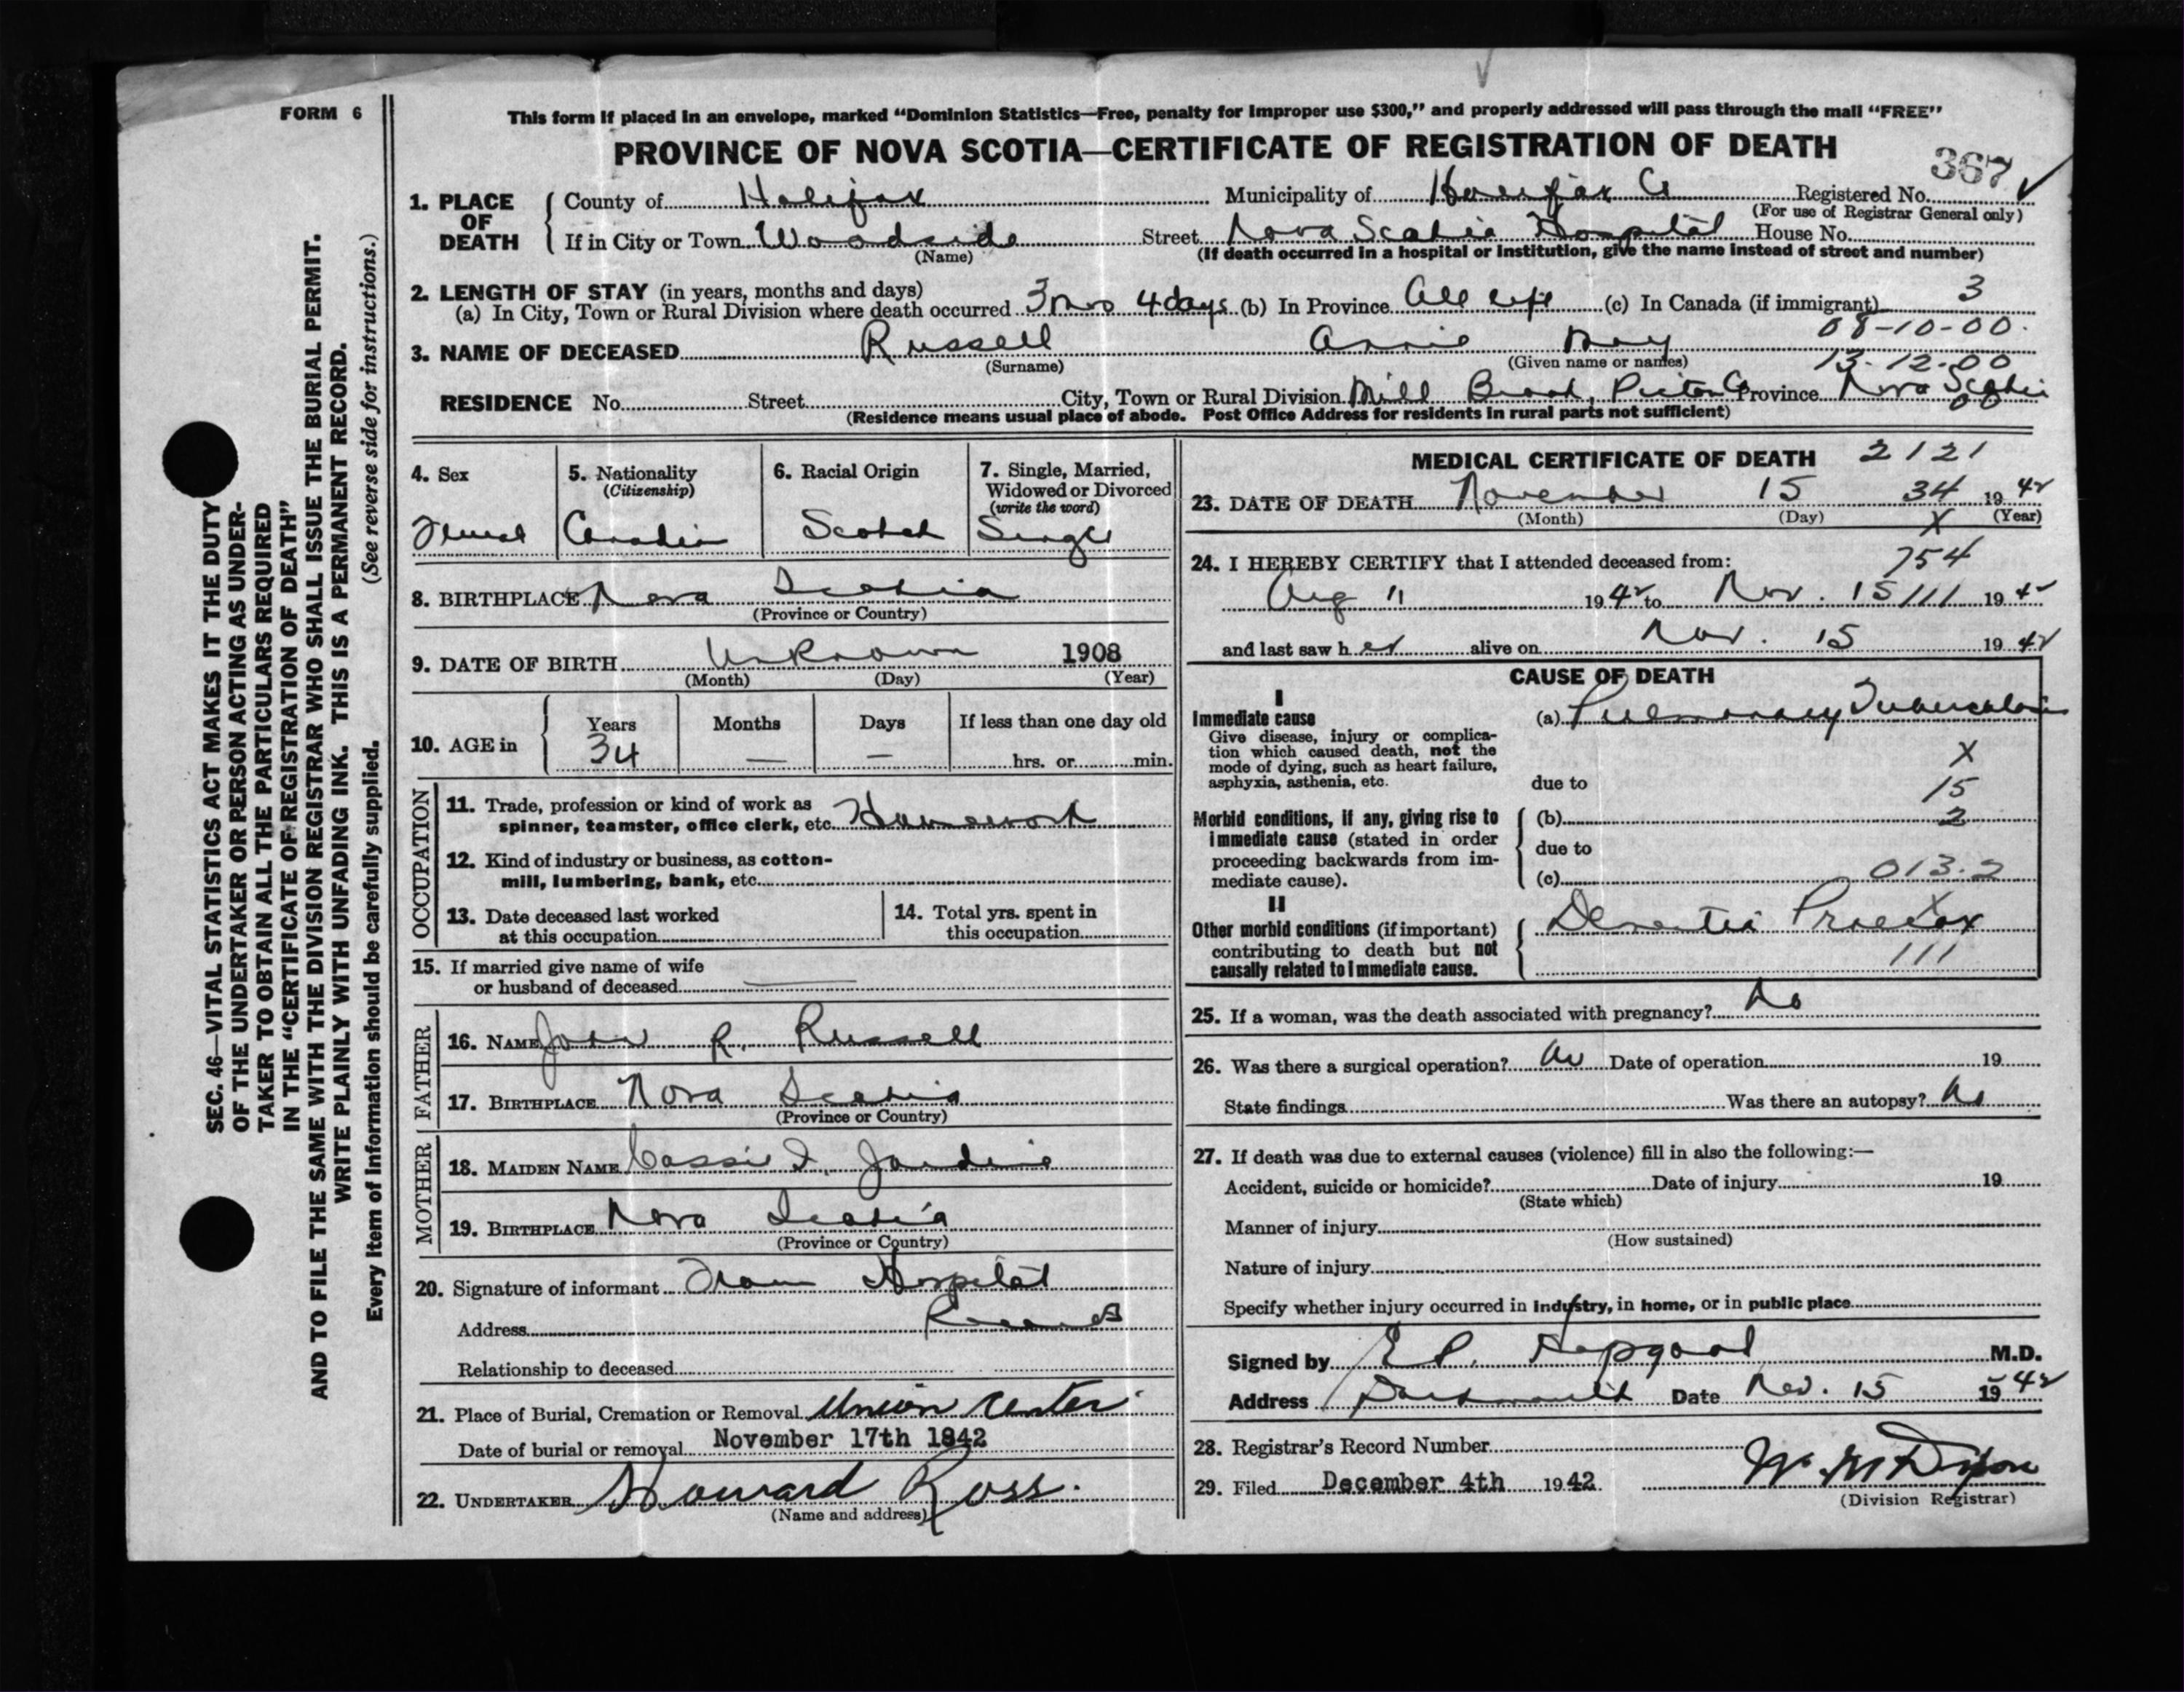 FORM 6
This form if placed in an envelope, marked "Dominion Statistics—Free, penalty for improper use $300," and properly addressed will pass through the mail "FREE"
PROVINCE OF NOVA SCOTIA—CERTIFICATE OF REGISTRATION OF DEATH
367
1. PLACE OF DEATH County of Halifax Municipality of Halifax Co Registered No.
(For use of Registrar General only)
If in City or Town Woodside Street Nova Scotia Hospital House No.
(Name) (If death occurred in a hospital or institution, give the name instead of street and number)
2. LENGTH OF STAY (in years, months and days)
(a) In City, Town or Rural Division where death occurred 3 mos 4 days (b) In Province All life (c) In Canada (if immigrant) 3
08-10-00.
3. NAME OF DECEASED Russell Annie May
(Surname) (Given name or names) 13-12-00
RESIDENCE No. Street City, Town or Rural Division Mill Brook, Pictou Co Province Nova Scotia
(Residence means usual place of abode. Post Office Address for residents in rural parts not sufficient)
SEC. 46—VITAL STATISTICS ACT MAKES IT THE DUTY
OF THE UNDERTAKER OR PERSON ACTING AS UNDER-
TAKER TO OBTAIN ALL THE PARTICULARS REQUIRED
IN THE "CERTIFICATE OF REGISTRATION OF DEATH"
AND TO FILE THE SAME WITH THE DIVISION REGISTRAR WHO SHALL ISSUE THE BURIAL PERMIT.
WRITE PLAINLY WITH UNFADING INK. THIS IS A PERMANENT RECORD.
Every item of information should be carefully supplied. (See reverse side for instructions.)
4. Sex 5. Nationality 6. Racial Origin 7. Single, Married,
(Citizenship) Widowed or Divorced
(write the word)
Female Canadian Scotch Single
8. BIRTHPLACE Nova Scotia
(Province or Country)
9. DATE OF BIRTH Unknown 1908
(Month) (Day) (Year)
10. AGE in Years Months Days If less than one day old
34 — — hrs. or min.
OCCUPATION
11. Trade, profession or kind of work as
spinner, teamster, office clerk, etc. Housework
12. Kind of industry or business, as cotton-
mill, lumbering, bank, etc.
13. Date deceased last worked
at this occupation
14. Total yrs. spent in
this occupation
15. If married give name of wife
or husband of deceased —
FATHER
16. NAME John R. Russell
17. BIRTHPLACE Nova Scotia
(Province or Country)
MOTHER
18. MAIDEN NAME Cassie I. Jardine
19. BIRTHPLACE Nova Scotia
(Province or Country)
20. Signature of informant From Hospital
Address Records
Relationship to deceased
21. Place of Burial, Cremation or Removal Union Center
Date of burial or removal November 17th 1942
22. UNDERTAKER Howard Ross.
(Name and address)
MEDICAL CERTIFICATE OF DEATH 2121
23. DATE OF DEATH November 15 34 1942
(Month) (Day) X (Year)
24. I HEREBY CERTIFY that I attended deceased from: 754
Aug 11 1942 to Nov. 15 111 1942
and last saw her alive on Nov. 15 1942
CAUSE OF DEATH
I
Immediate cause (a) Pulmonary Tuberculosis
Give disease, injury or complica-
tion which caused death, not the
mode of dying, such as heart failure,
asphyxia, asthenia, etc. due to
X
15
Morbid conditions, if any, giving rise to (b) 2
immediate cause (stated in order due to
proceeding backwards from im-
mediate cause). (c) 013.2
II X
Other morbid conditions (if important) Dementia Praecox
contributing to death but not
causally related to immediate cause. 111
25. If a woman, was the death associated with pregnancy? No
26. Was there a surgical operation? No Date of operation 19
State findings Was there an autopsy? No
27. If death was due to external causes (violence) fill in also the following:—
Accident, suicide or homicide? Date of injury 19
(State which)
Manner of injury
(How sustained)
Nature of injury
Specify whether injury occurred in industry, in home, or in public place
Signed by E P. Hopgood M.D.
Address Dartmouth Date Nov. 15 1942
28. Registrar's Record Number
29. Filed December 4th 1942.
(Division Registrar)